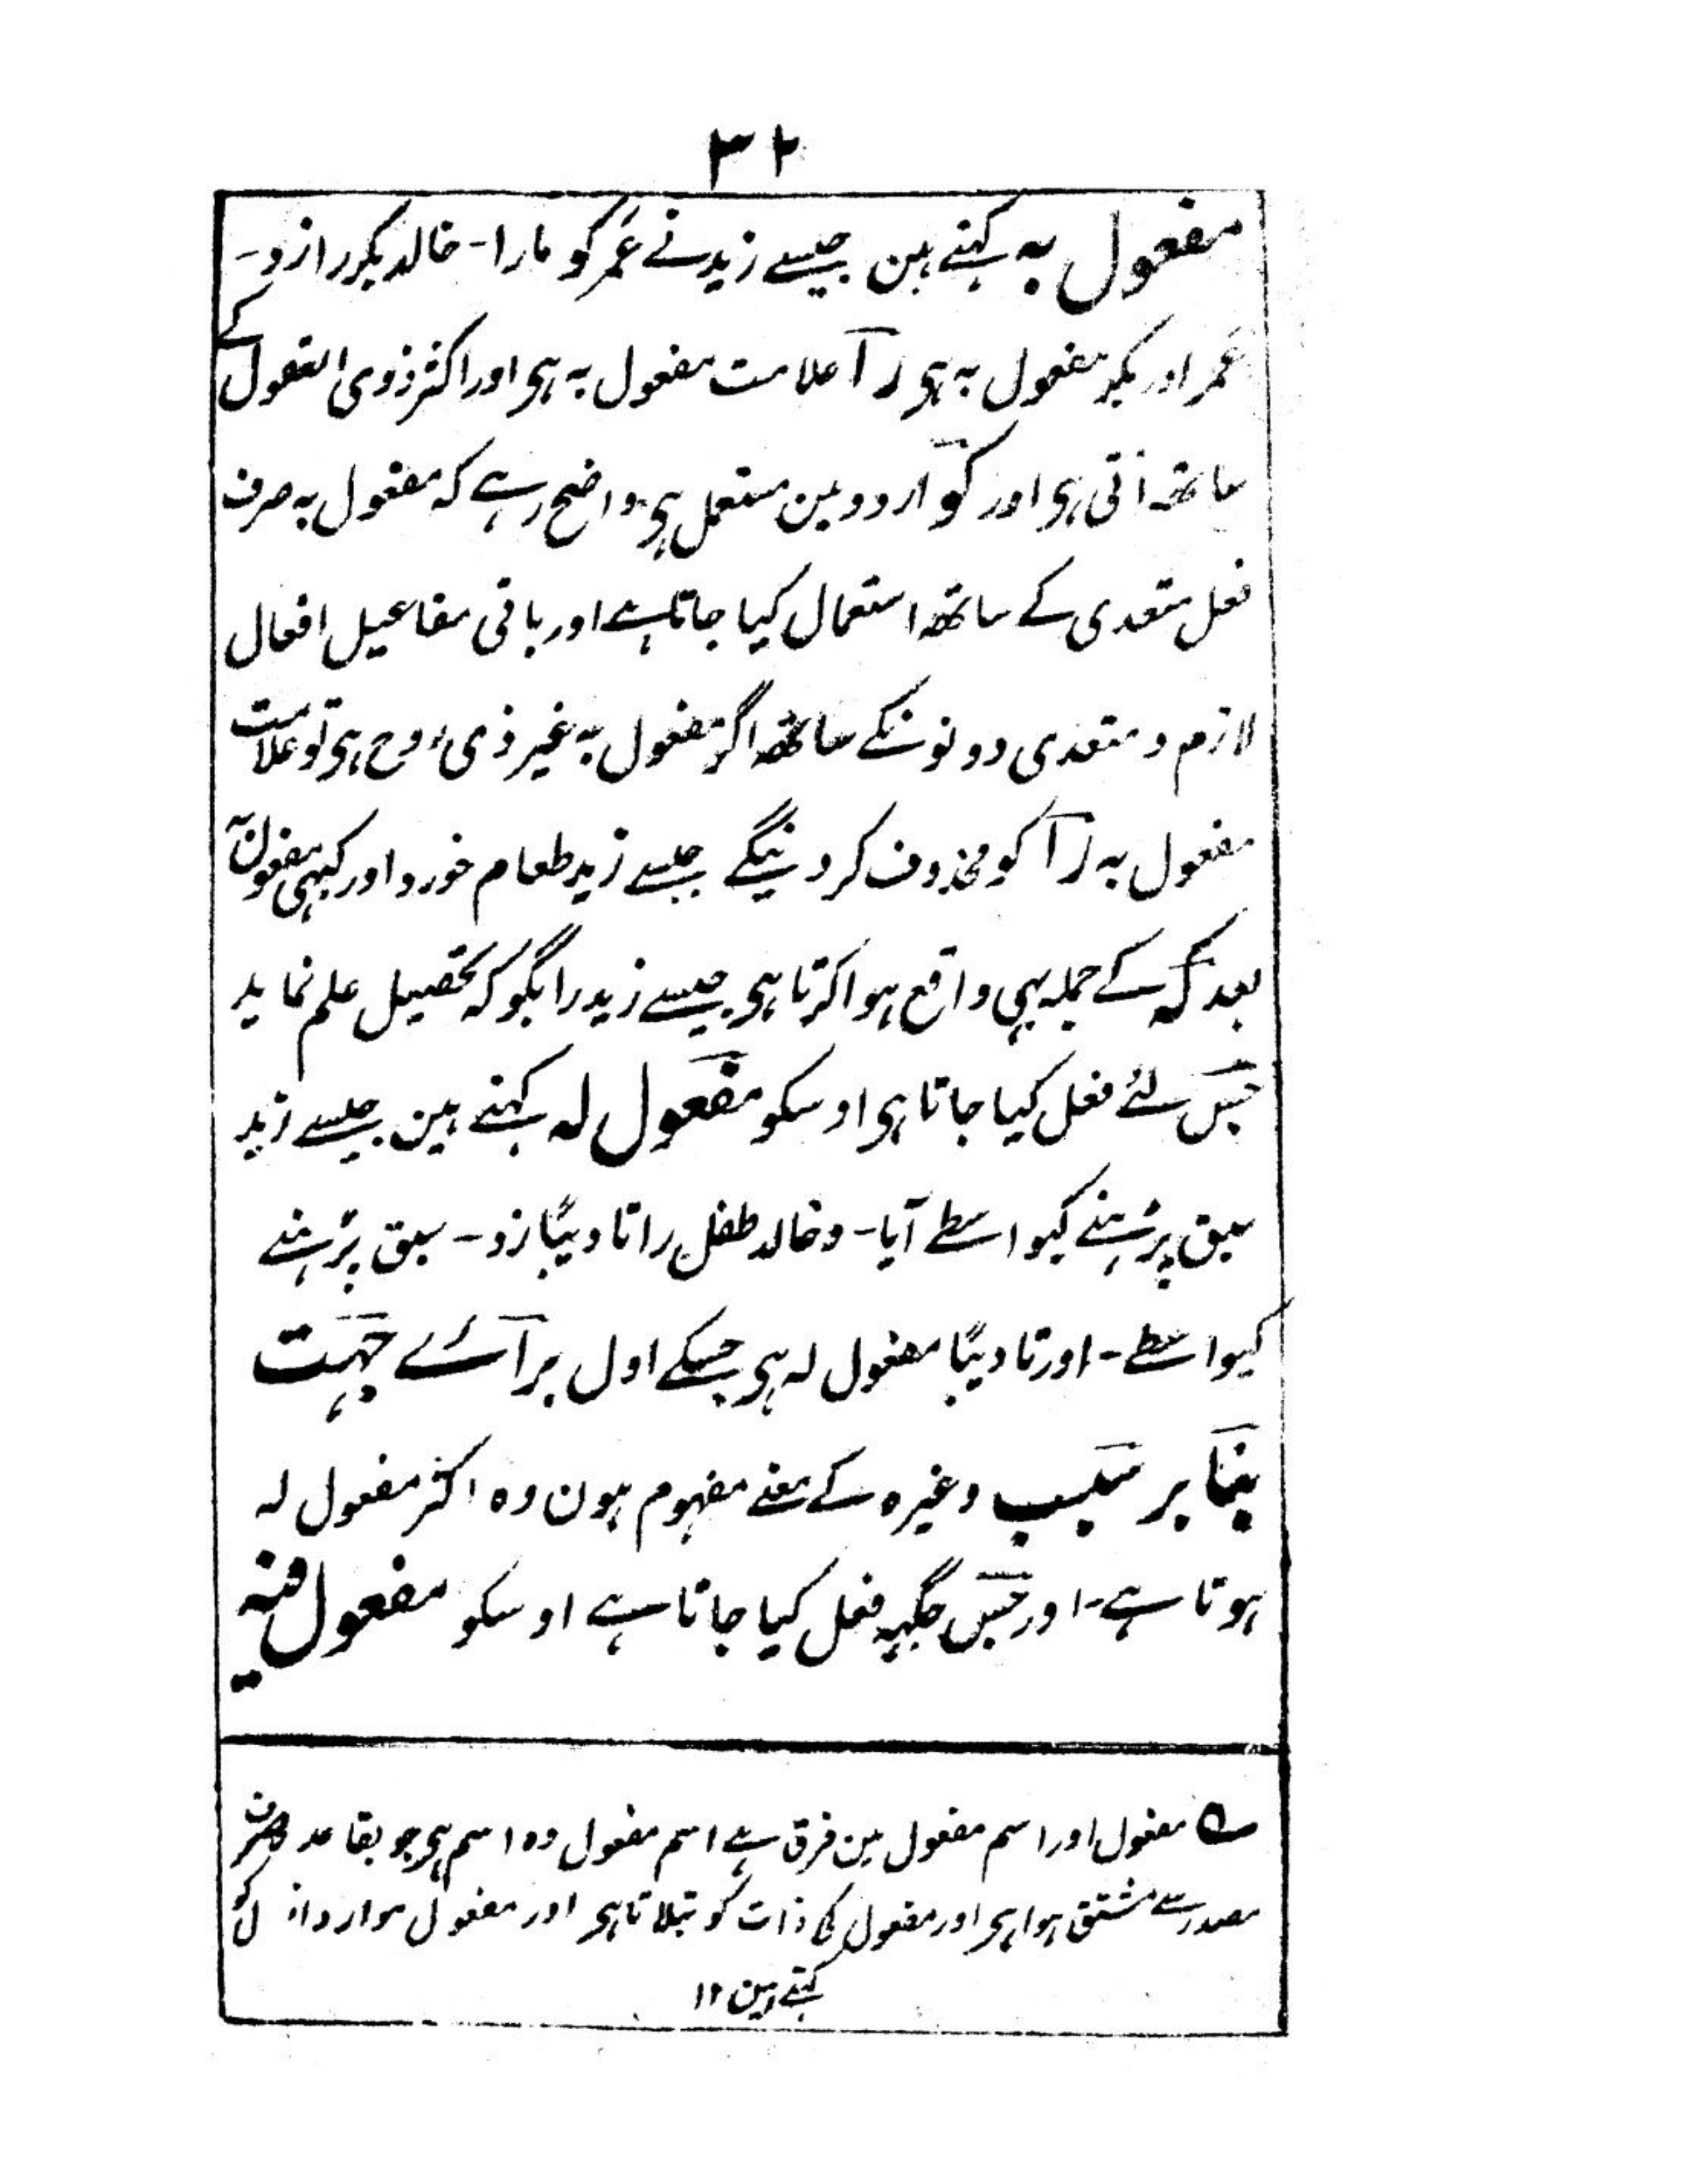 ۳۲
مفعول بہ کہتے ہین جیسے زید نے عمر کو مارا - خالد بکر را زد -
عمر اور بکر مفعول بہ ہی را علامت مفعول بہ ہی اور اکثر ذوی العقول کے
ساتھہ آتی ہی اور کو اردو مین مستعمل ہی واضح رہے کہ مفعول بہ صرف
فعل متعدی کے ساتھہ استعمال کیا جاتا ہے اور باقی مفاعیل افعال
لازم و متعدی دونونکے ساتھہ اگر مفعول بہ غیر ذی روح ہی تو علامت
مفعول بہ را کو محذوف کر دینگے جیسے زید طعام خورد اور کبہی مفعول بہ
بعد کہ کے جملہ بہی واقع ہوا کرتا ہی جیسے زید را بگو کہ تحصیل علم نماید
جس لئے فعل کیا جاتا ہی اوسکو مفعول لہ کہتے ہین جیسے زید
سبق پڑہنے کیواسطے آیا - و خالد طفل را تادیبًا زد - سبق پڑہنے
کیواسطے - اور تادیبًا مفعول لہ ہی جسکے اول برائے جہت
بنا بر سبب وغیرہ کے معنے مفہوم ہون وہ اکثر مفعول لہ
ہوتا ہے - اور جس جگہہ فعل کیا جاتا ہے اوسکو مفعول فیہ
مفعول اور اسم مفعول مین فرق ہے اسم مفعول وہ اسم ہی جو بقاعدہ صرف
مصدر سے مشتق ہوا ہی اور مفعول کی ذات کو بتلاتا ہی اور مفعول کو
کہتے ہین ۱۲